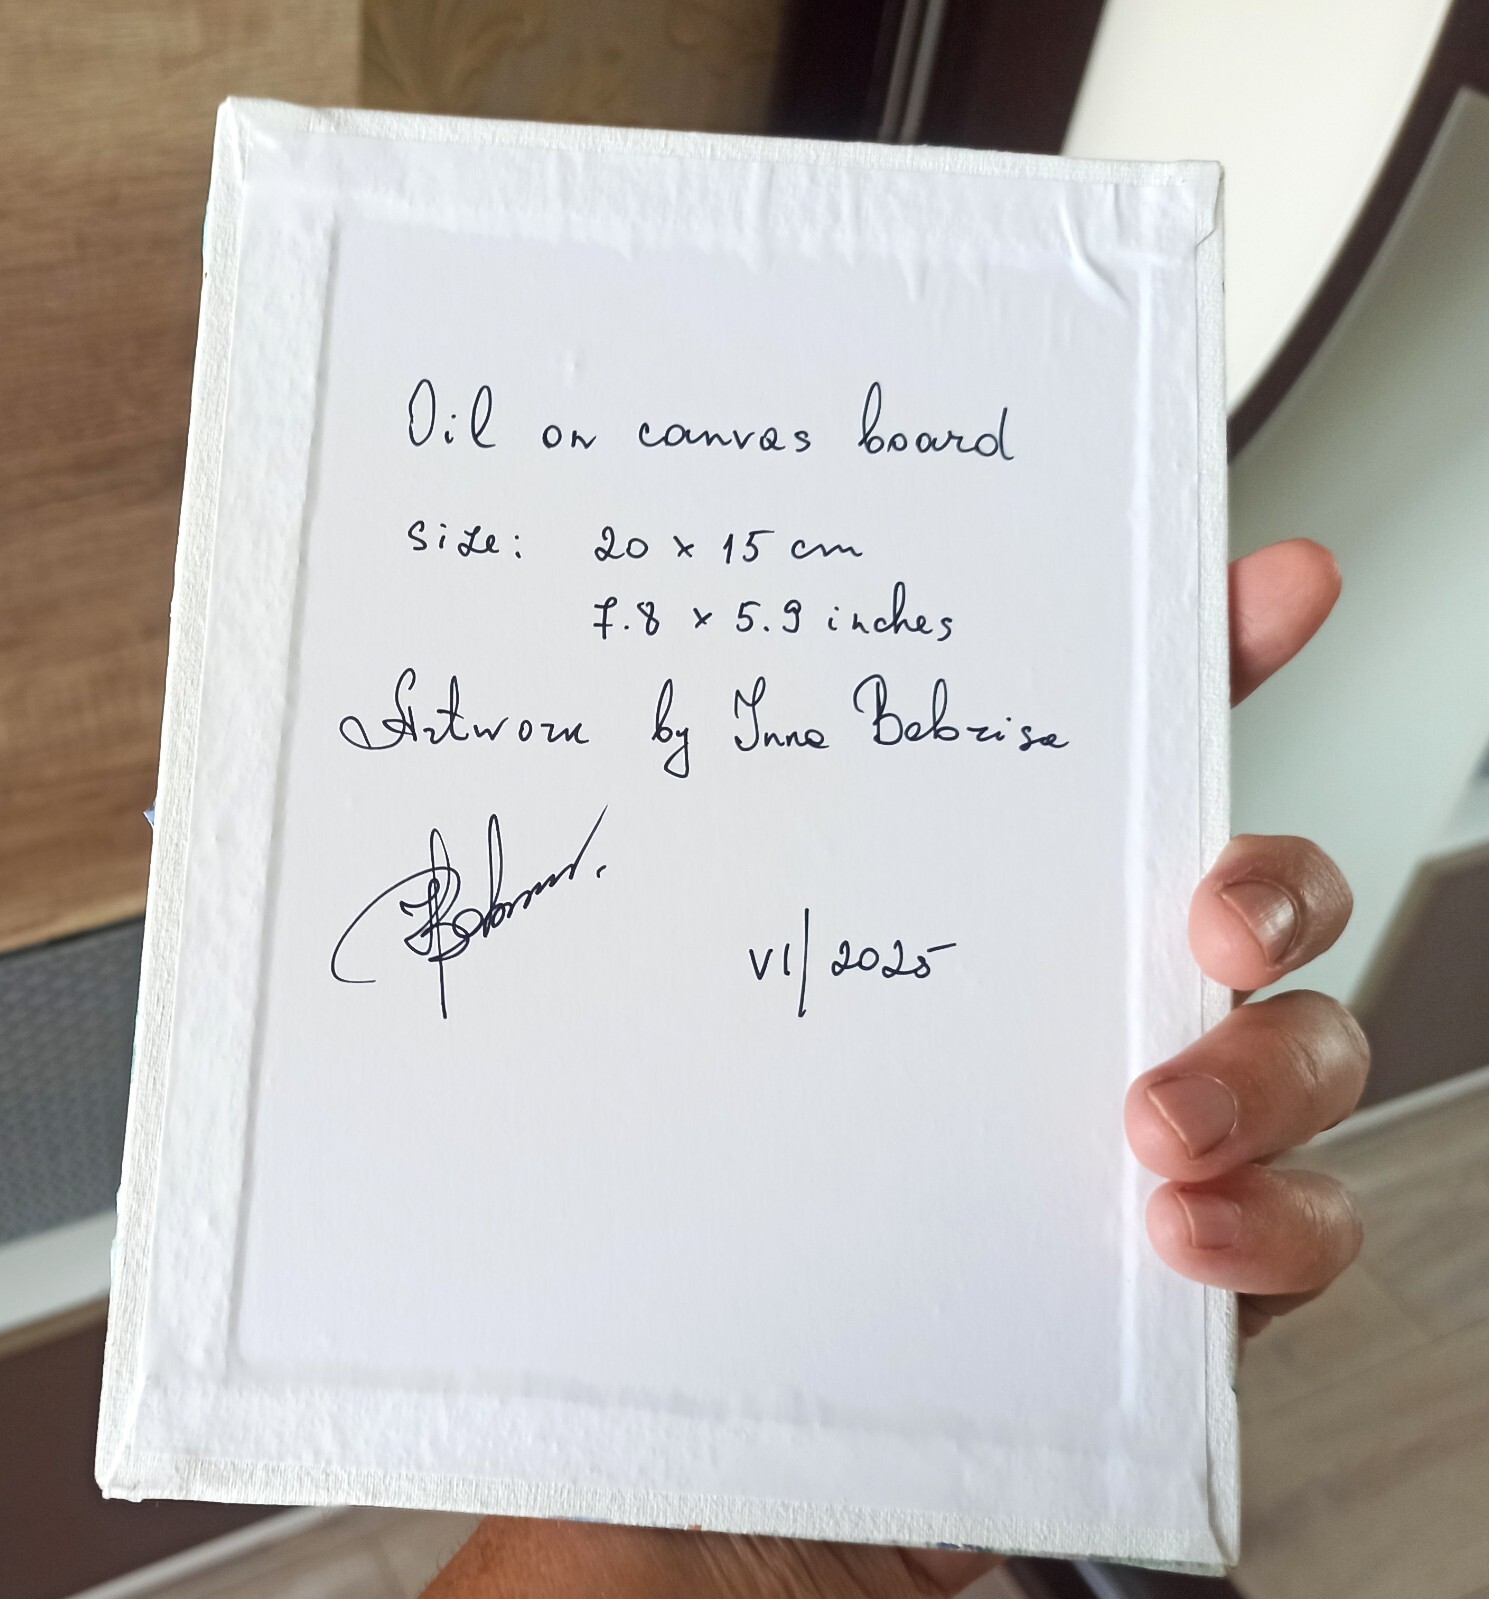 Oil on canvas board
size: 20 x 15 cm
7.8 x 5.9 inches
Artwork by Inna Bebrisa
VI/2025